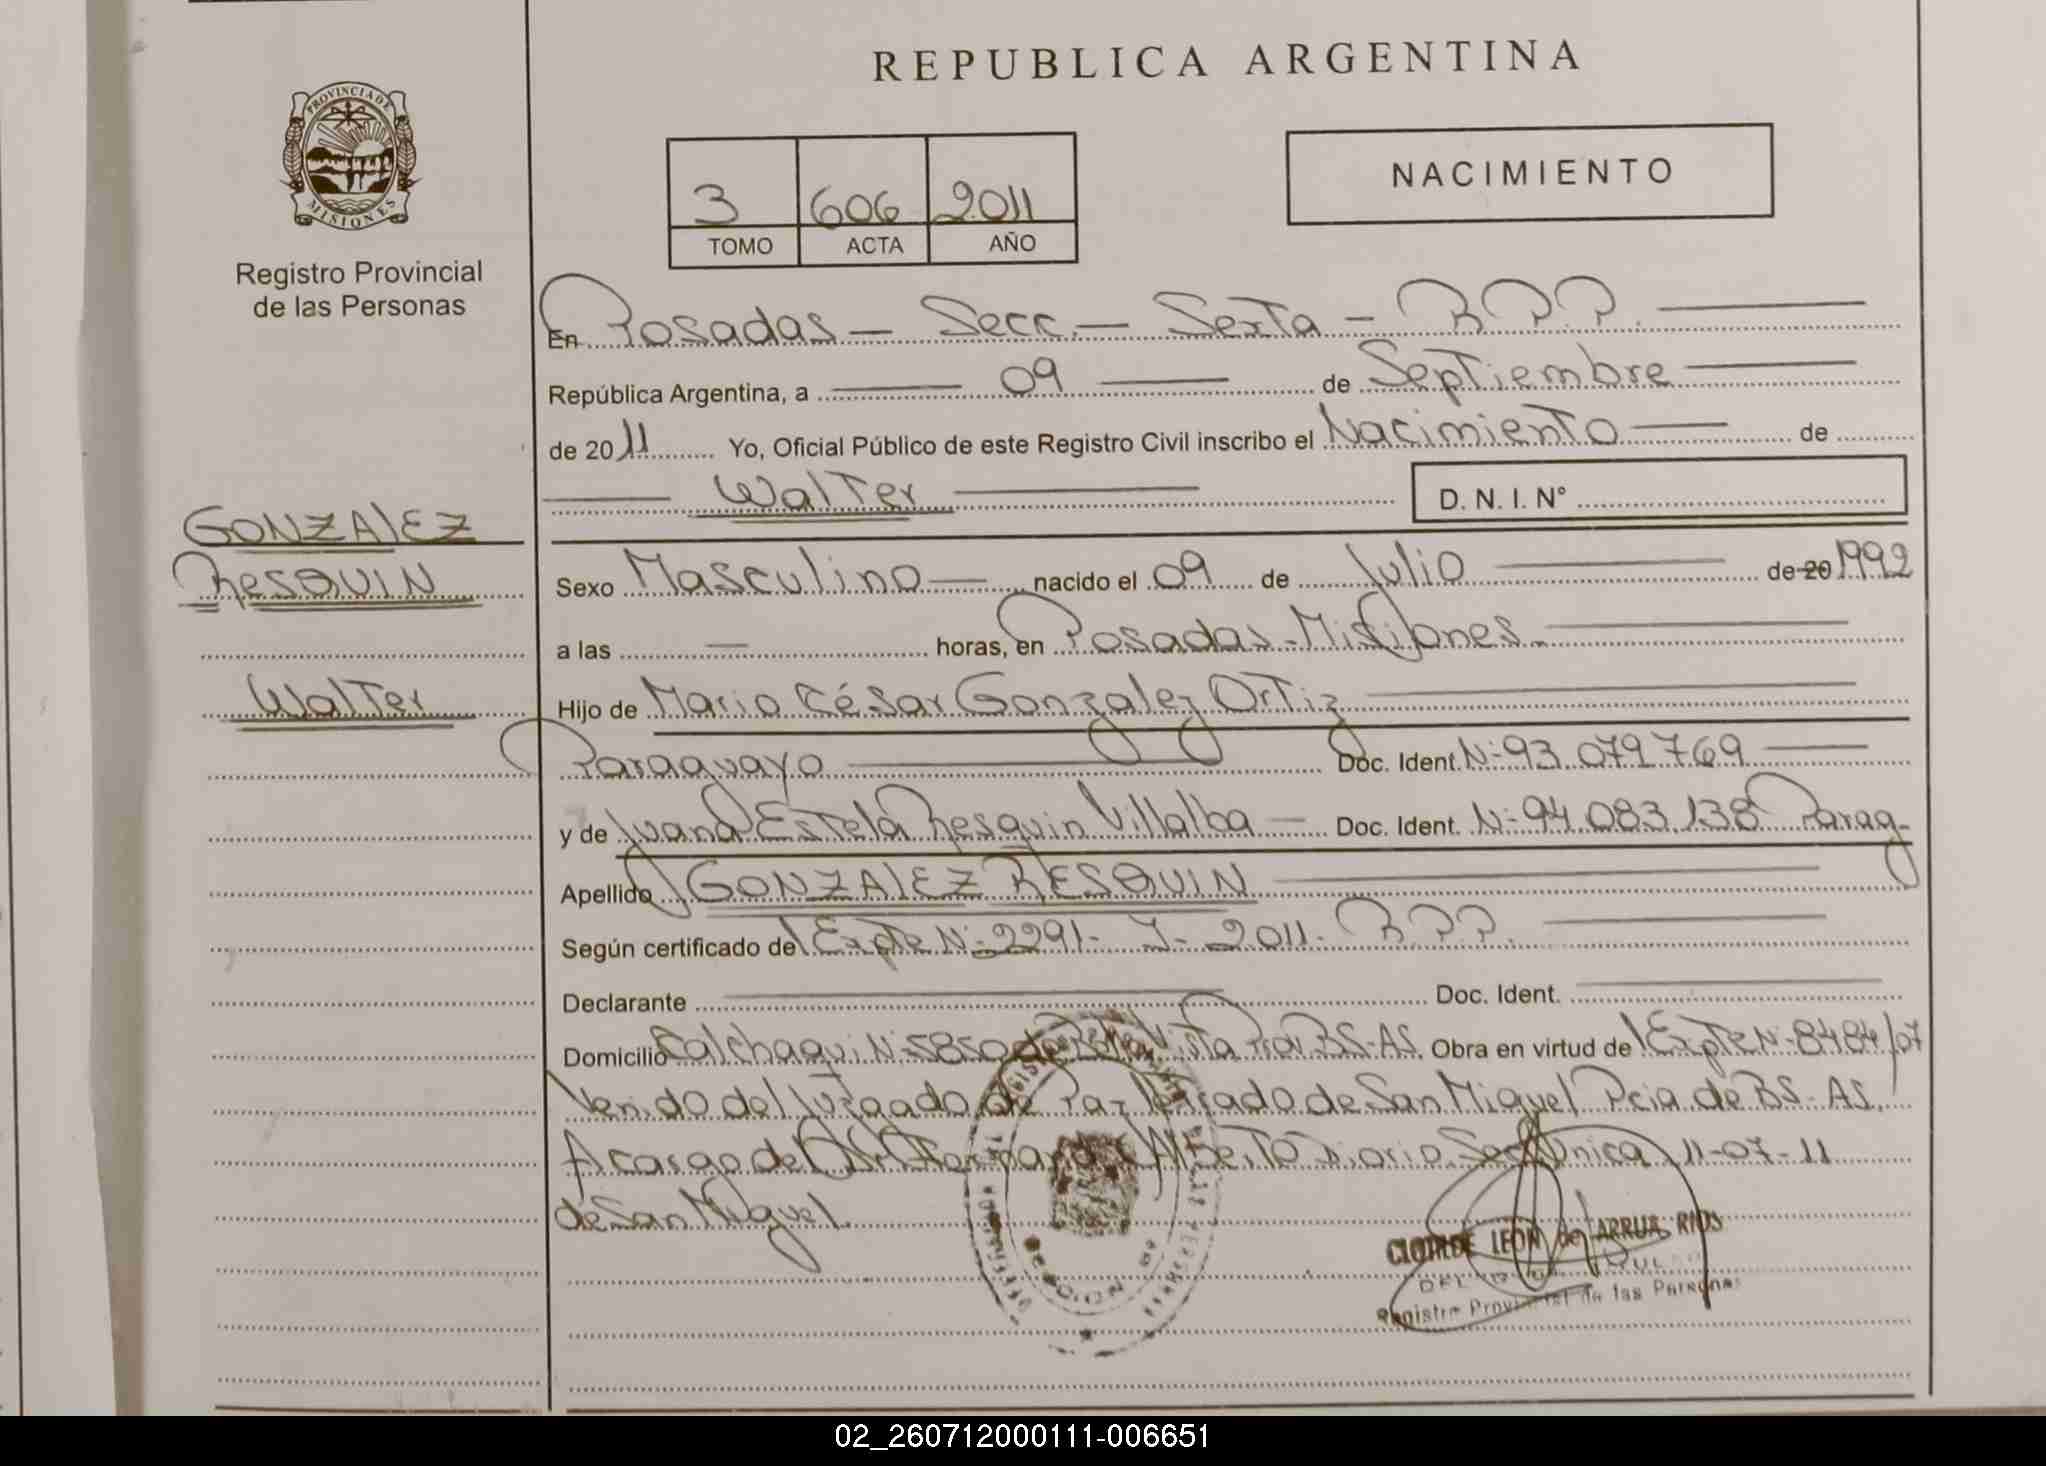 REPUBLICA ARGENTINA
PROVINCIA DE
MISIONES
Registro Provincial
de las Personas
3 606 2011
TOMO ACTA AÑO
NACIMIENTO
En Posadas - Secc. - Sexta - R.P.P.
República Argentina, a 09 de Septiembre
de 2011 Yo, Oficial Público de este Registro Civil inscribo el Nacimiento de
Walter D. N. I. N°
GONZALEZ
RESQUIN
Walter
Sexo Masculino nacido el 09 de Julio de 20 1992
a las - horas, en Posadas - Misiones.
Hijo de Mario César Gonzalez Ortiz
Paraguayo Doc. Ident. N-93.079.769
y de Juana Estela Resquin Villalba Doc. Ident. N-94.083.138 Parag-
Apellido GONZALEZ RESQUIN
Según certificado de Expte N- 2291- J- 2011- R.P.P.
Declarante Doc. Ident.
Domicilio Calchaqui N-5850 de Bella Vista Prov BS-AS. Obra en virtud de Expte N-8484/07
Venido del Juzgado de Paz Letrado de San Miguel Pcia. de BS-AS.
A cargo de Dr Alberto Secr Unica 11-07-11
de San Miguel.
CLOTILDE LEON de ARRUA RIOS
Registro Provincial de las Personas
02_260712000111-006651